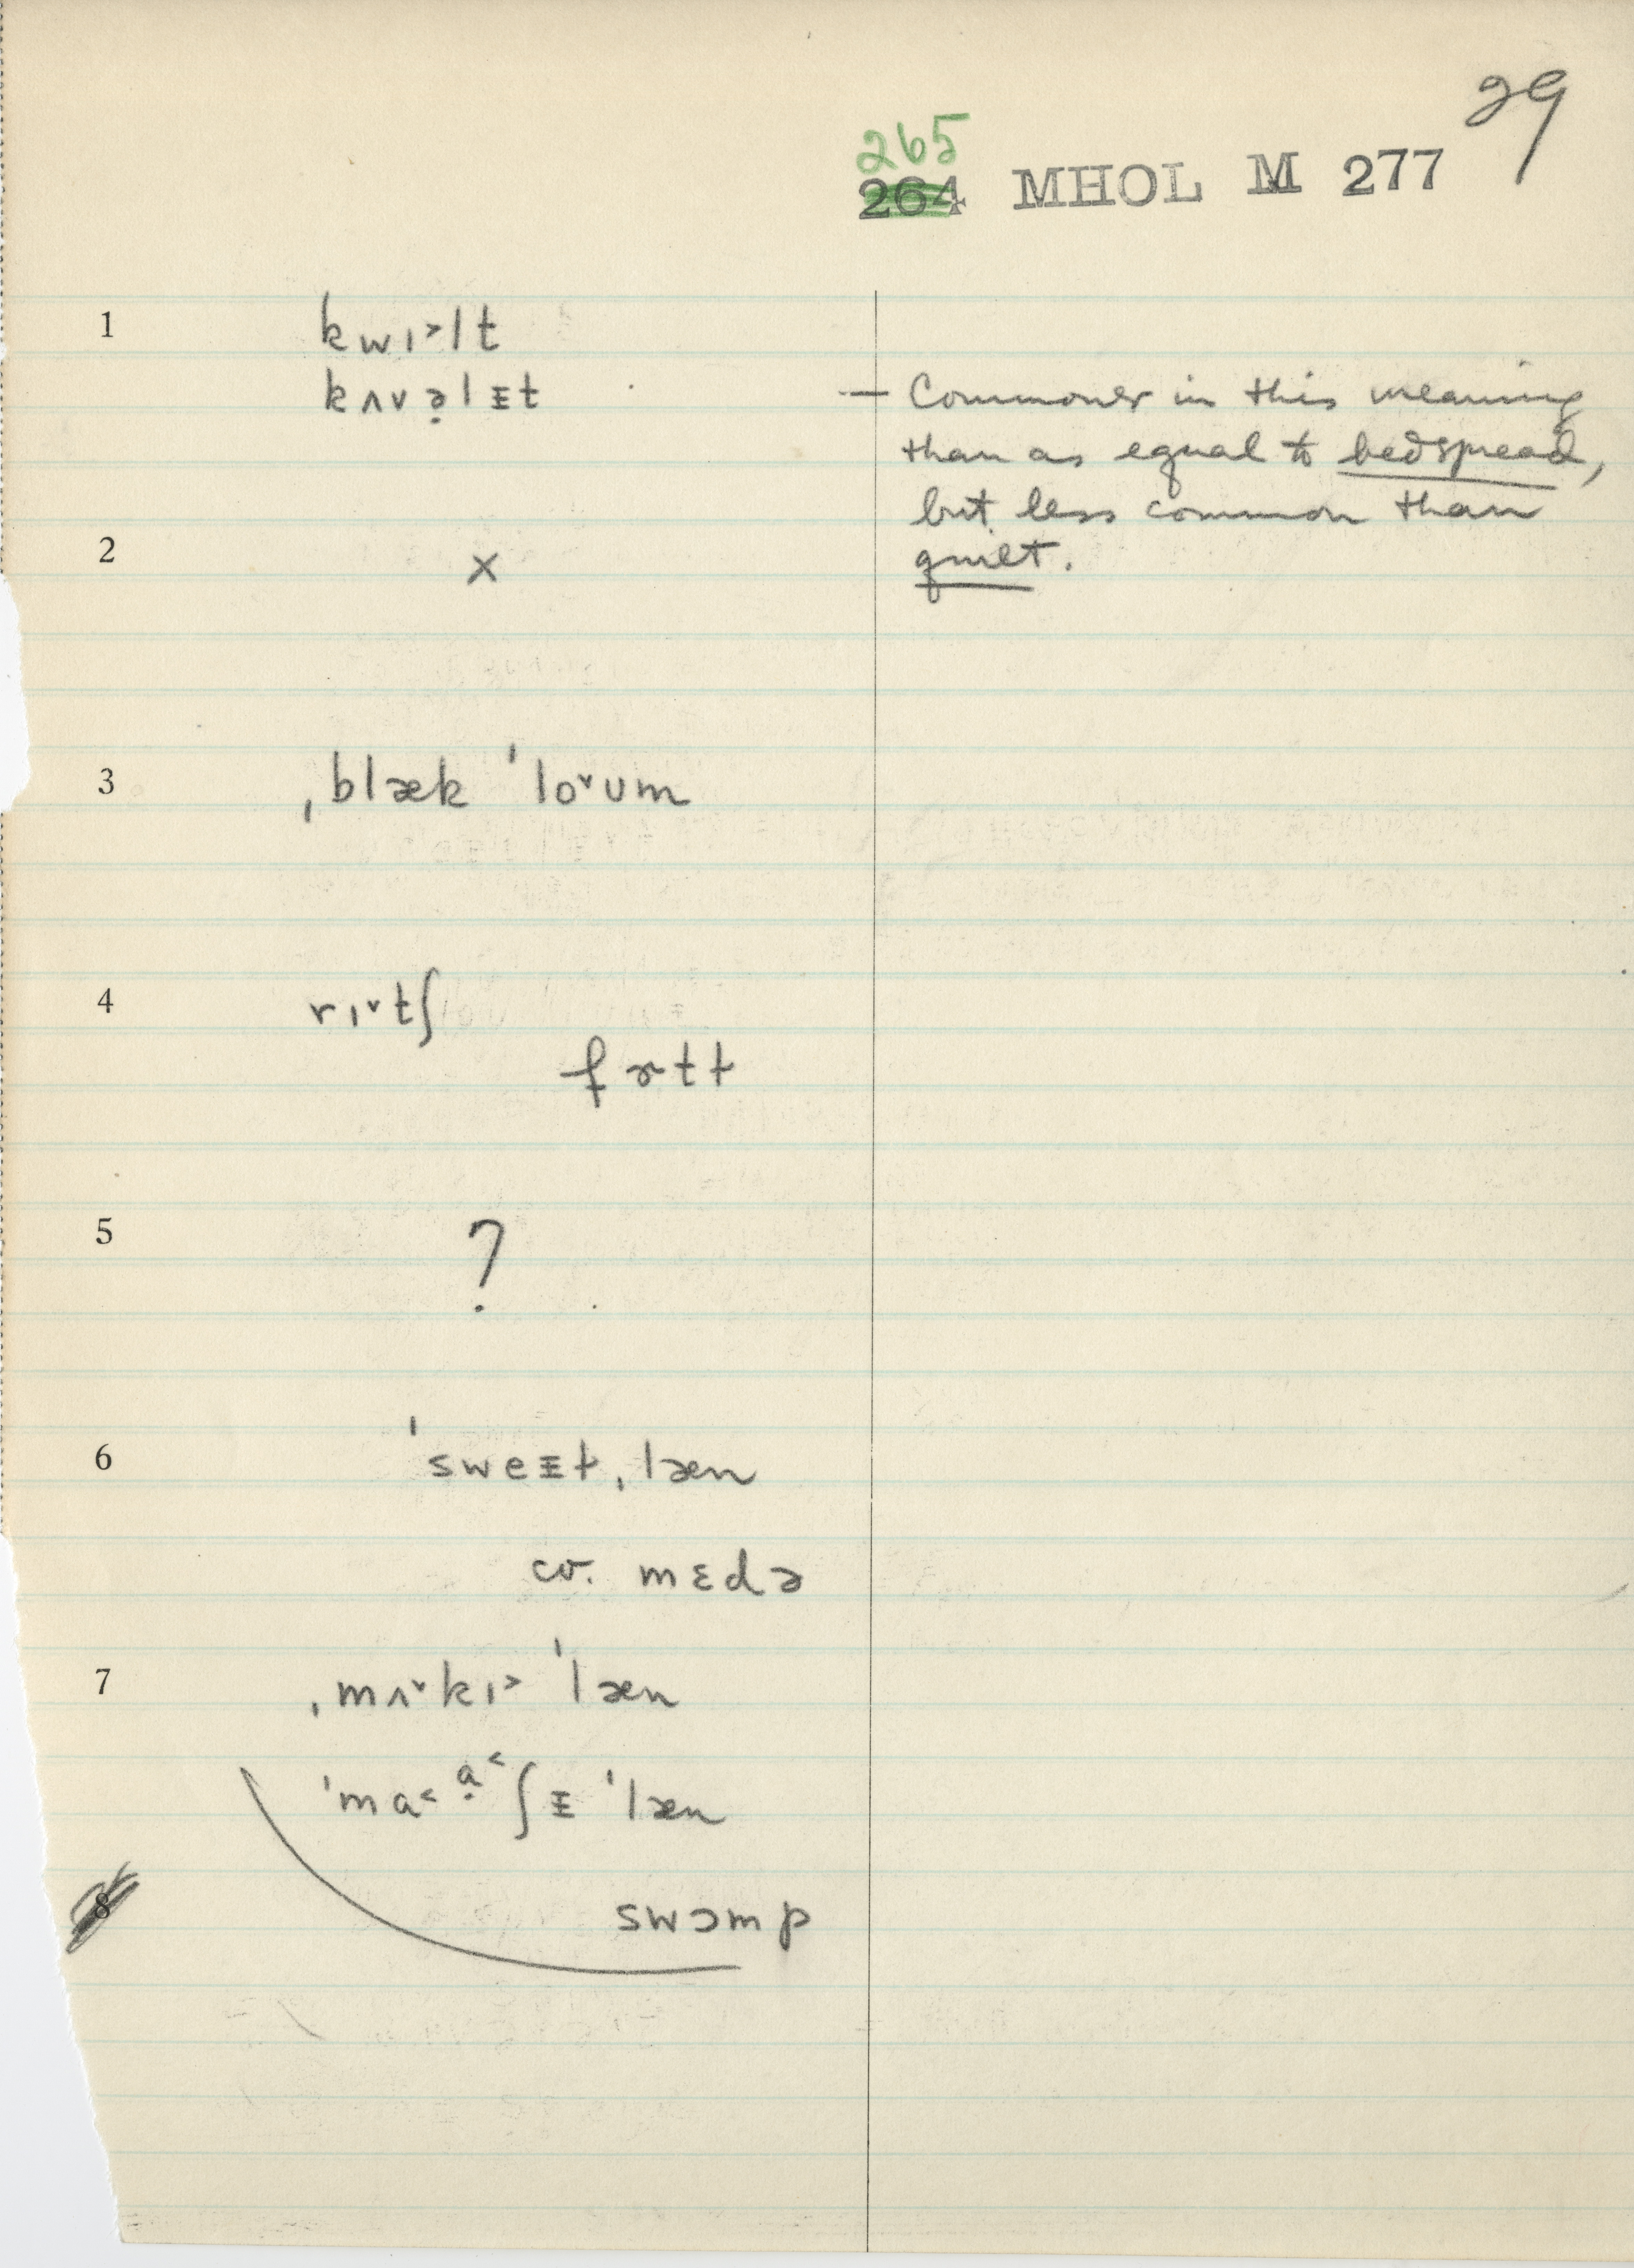 29
265
264 MHOL M 277
1 kwɪ˃lt
kʌvə̣lᵻt — Commoner in this meaning
than as equal to bedspread,
but less common than
2 x quilt.
3 ˌblæk ˈlo˅ʊm
4 rɪ˅tʃ
fɚtɫ
5 ?
6 ˈsweᵻt ˌlæn
cv. mɛdə
7 ˌmʌ˅kɪ˃ ˈlæn
ˈmɑ˂ɑ̣˂ʃᵻ ˈlæn
8 swɔmp